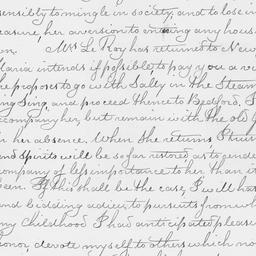 ensibly to mingle in society, and to lose in
easure, her aversion to entering any hous
on. Mr. Le Roy has returned to New
Maria intends if possible, to pay you a vi
he proposes to go with Sally in the Steam
ng Sing, and proceed thence to Bedford, I
ccompany her, but remain with the old G
n her absence. When she returns, I trust
and spirits will be so far restored as to rende
company of less importance to her than it
been. If this shall be the case, I will ha
and bidding adieu to pursuits from wh
my childhood I had anticipated pleas
honor, devote myself to others which no